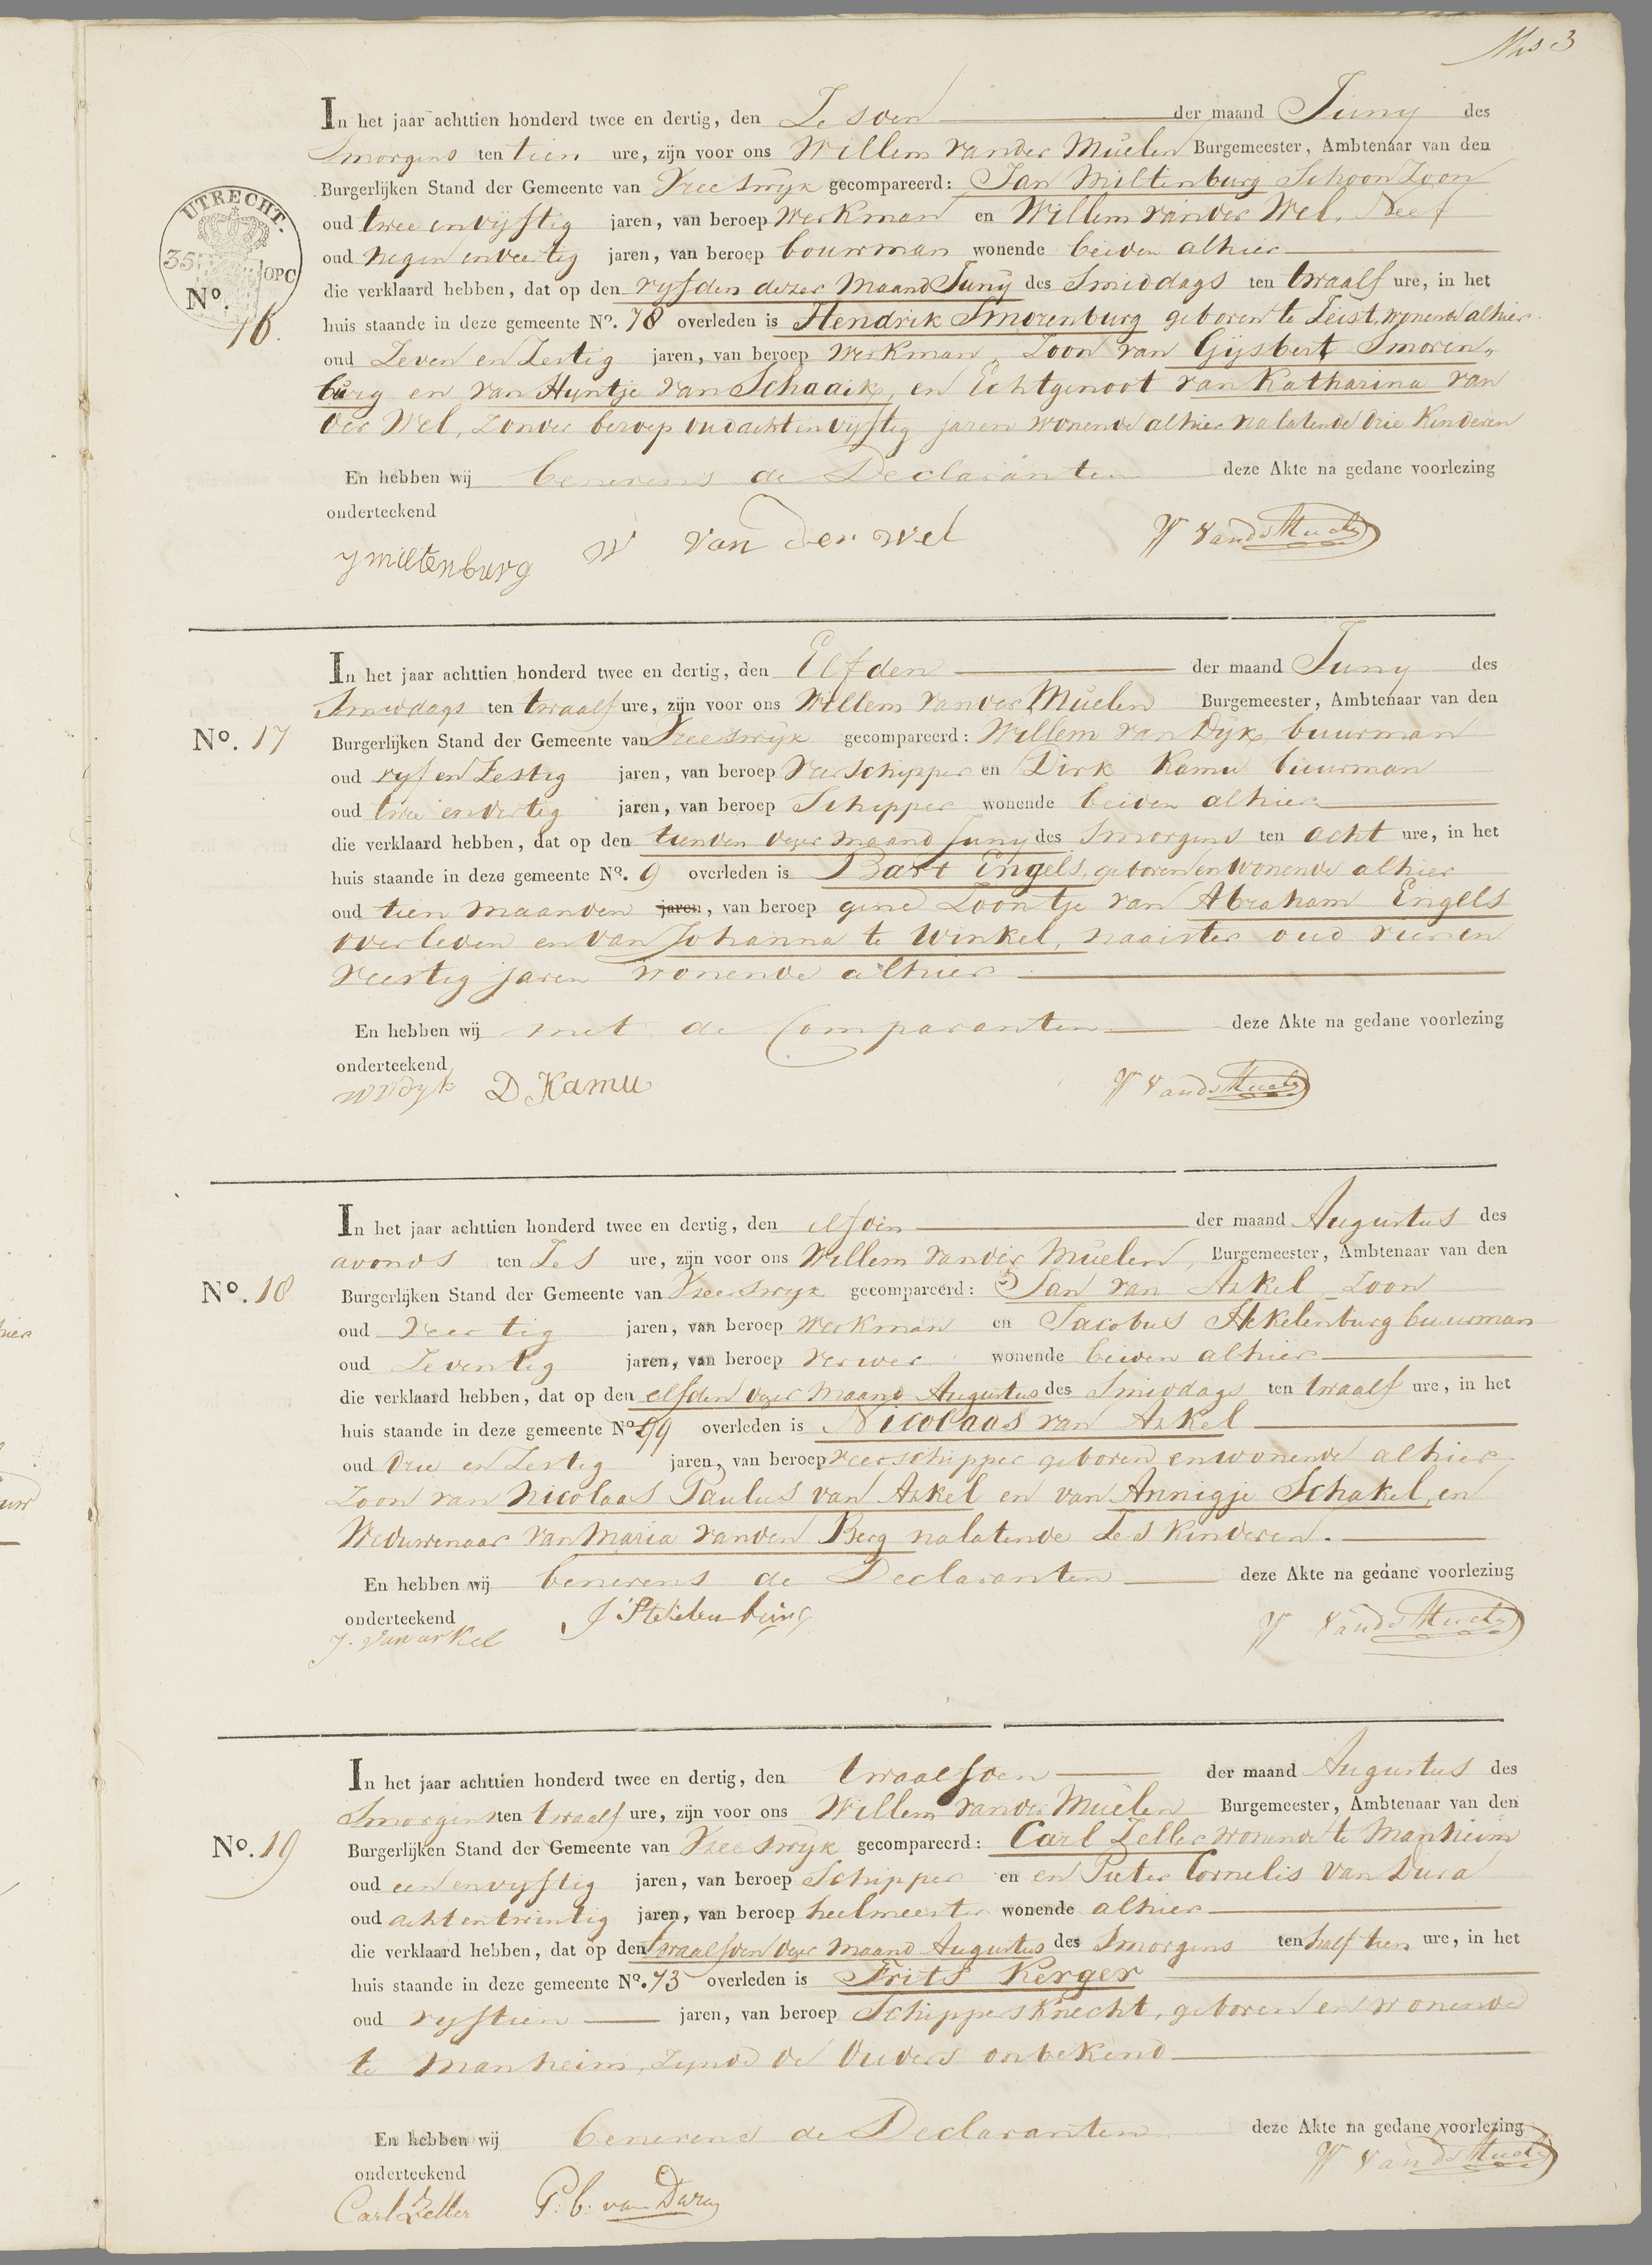 In het jaar achttien honderd twee en dertig, den Zesden der maand Juny des
Smorgens ten tien ure, zijn voor ons Willem van der Muelen Burgemeester, Ambtenaar van den
Burgerlijken Stand der Gemeente van Vreeswyk gecompareerd: Jan Miltenburg Schoon Zoon
oud twee en vyftig jaren, van beroep Werkman en Willem van der Wel, Neef
oud negen en veertig jaren, van beroep bouwman wonende beiden alhier
die verklaard hebben, dat op den vyfden dezer Maand Juny des Smiddags ten twaalf ure, in het
UTRECHT.
35 OPC
No. 16.
huis staande in deze gemeente No. 78 overleden is Hendrik Smorenburg geboren te Zeist, wonende alhier
oud Zeven en Zestig jaren, van beroep Werkman, Zoon van Gysbert Smoren-
burg en van Hyntje van Schaaik, en Echtgenoot van Katharina van
der Wel, Zonder beroep oud acht en vyftig jaren wonende alhier nalatende drie Kinderen
En hebben wij benevens de Declaranten deze Akte na gedane voorlezing
onderteekend
J miltenburg W van der wel W Vand Muelen
In het jaar achttien honderd twee en dertig, den Elfden der maand Juny des
Smiddags ten twaalf ure, zijn voor ons Willem van der Muelen Burgemeester, Ambtenaar van den
No. 17 Burgerlijken Stand der Gemeente van Vreeswyk gecompareerd: Willem van Dyk, buurman
oud vyf en Zestig jaren, van beroep Veerschipper en Dirk Kamu buurman
oud twee en dertig jaren, van beroep Schipper wonende beiden alhier
die verklaard hebben, dat op den tienden dezer maand Juny des Smorgens ten acht ure, in het
huis staande in deze gemeente No. 9 overleden is Bart Engels, geboren en wonende alhier
oud tien maanden jaren, van beroep geene Zoontje van Abraham Engels
overleden en van Johanna te Winkel, naaister oud vier en
veertig jaren wonende alhier
En hebben wij met de Comparanten deze Akte na gedane voorlezing
onderteekend
W V Dyk D Kamu W Vand Muelen
In het jaar achttien honderd twee en dertig, den elfden der maand Augustus des
avonds ten Zes ure, zijn voor ons Willem van der Muelen, Burgemeester, Ambtenaar van den
No. 18 Burgerlijken Stand der Gemeente van Vreeswyk gecompareerd: Jan van Arkel Zoon
oud Veertig jaren, van beroep Werkman en Jacobus Stekelenburg buurman
oud Zeventig jaren, van beroep Verwer wonende beiden alhier
die verklaard hebben, dat op den elfden dezer Maand Augustus des Smiddags ten twaalf ure, in het
huis staande in deze gemeente No. 99 overleden is Nicolaas van Arkel
oud drie en Zestig jaren, van beroep veerschipper geboren en wonende alhier
Zoon van Nicolaas Paulus van Arkel en van Annigje Schakel, en
Weduwenaar van Maria van den Berg nalatende Zes kinderen.
En hebben wij benevens de Declaranten deze Akte na gedane voorlezing
onderteekend
J. van arkel J Stekelenburg W Vand Muelen
In het jaar achttien honderd twee en dertig, den twaalfden der maand Augustus des
Smorgens ten twaalf ure, zijn voor ons Willem van der Muelen Burgemeester, Ambtenaar van den
No. 19 Burgerlijken Stand der Gemeente van Vreeswyk gecompareerd: Carl Zeller wonende te Manheim
oud een en vyftig jaren, van beroep Schipper en en Pieter Cornelis van Dura
oud acht en twintig jaren, van beroep heelmeester wonende alhier
die verklaard hebben, dat op den twaalfden dezer Maand Augustus des Smorgens ten half tien ure, in het
huis staande in deze gemeente No. 73 overleden is Frits Kerger
oud vyftien jaren, van beroep Schippersknecht, geboren en wonende
te Manheim, zynde de Ouders onbekend
En hebben wij benevens de Declaranten deze Akte na gedane voorlezing
onderteekend
Carl Zeller P. C. van Dura W Vand Muelen